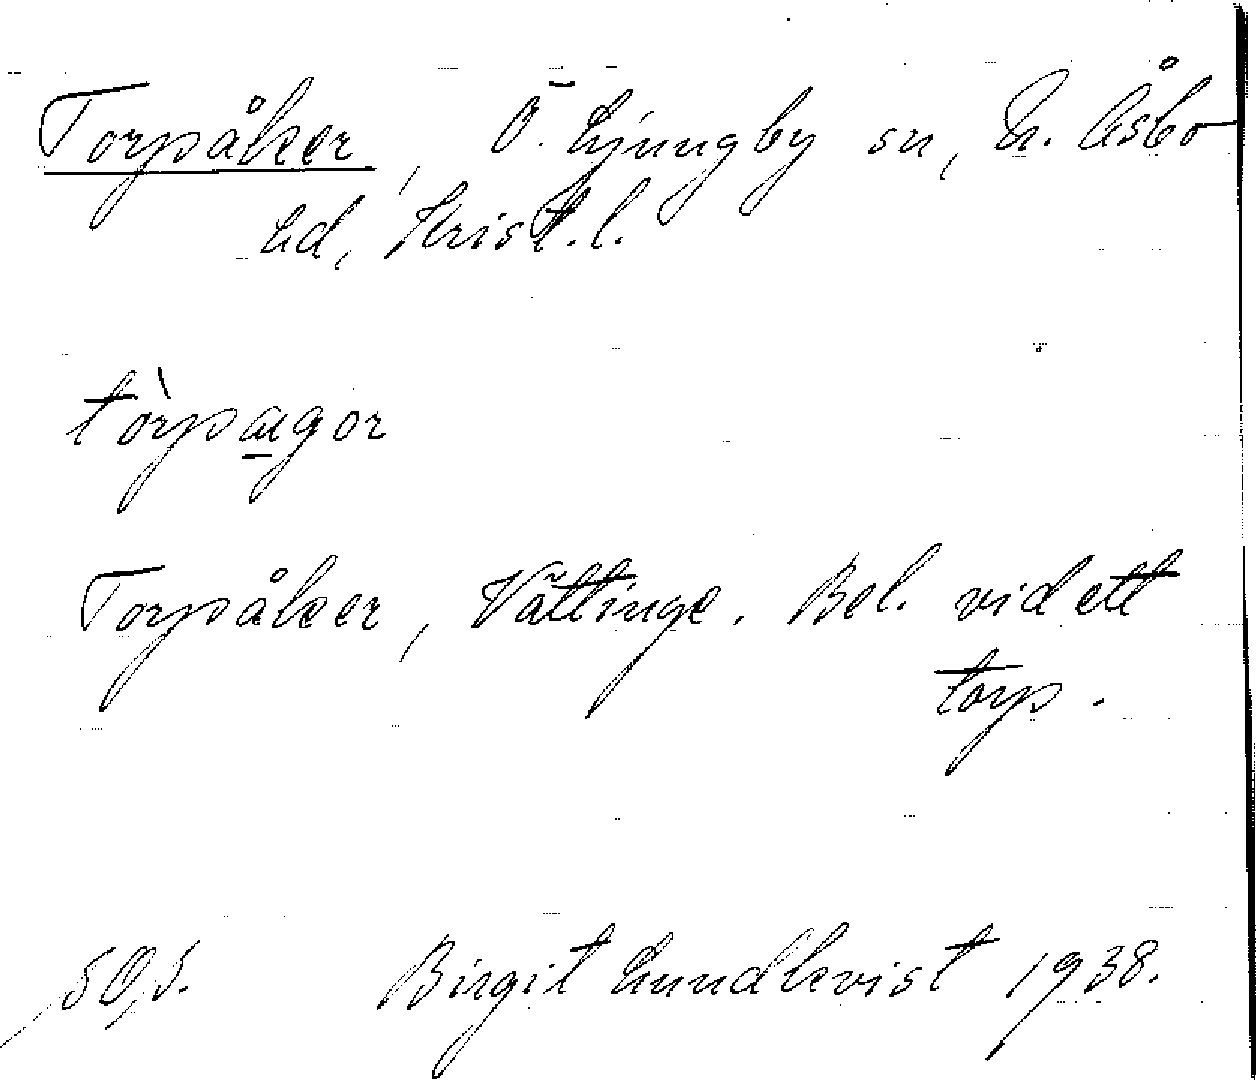 Torpåker, Ö. Ljungby sn, N. Åsbo
hd, Krist. l.
tòrpægor
Torpåker, Vättinge. Bel. vid ett
torp.
Birgit Lundkvist 1938.